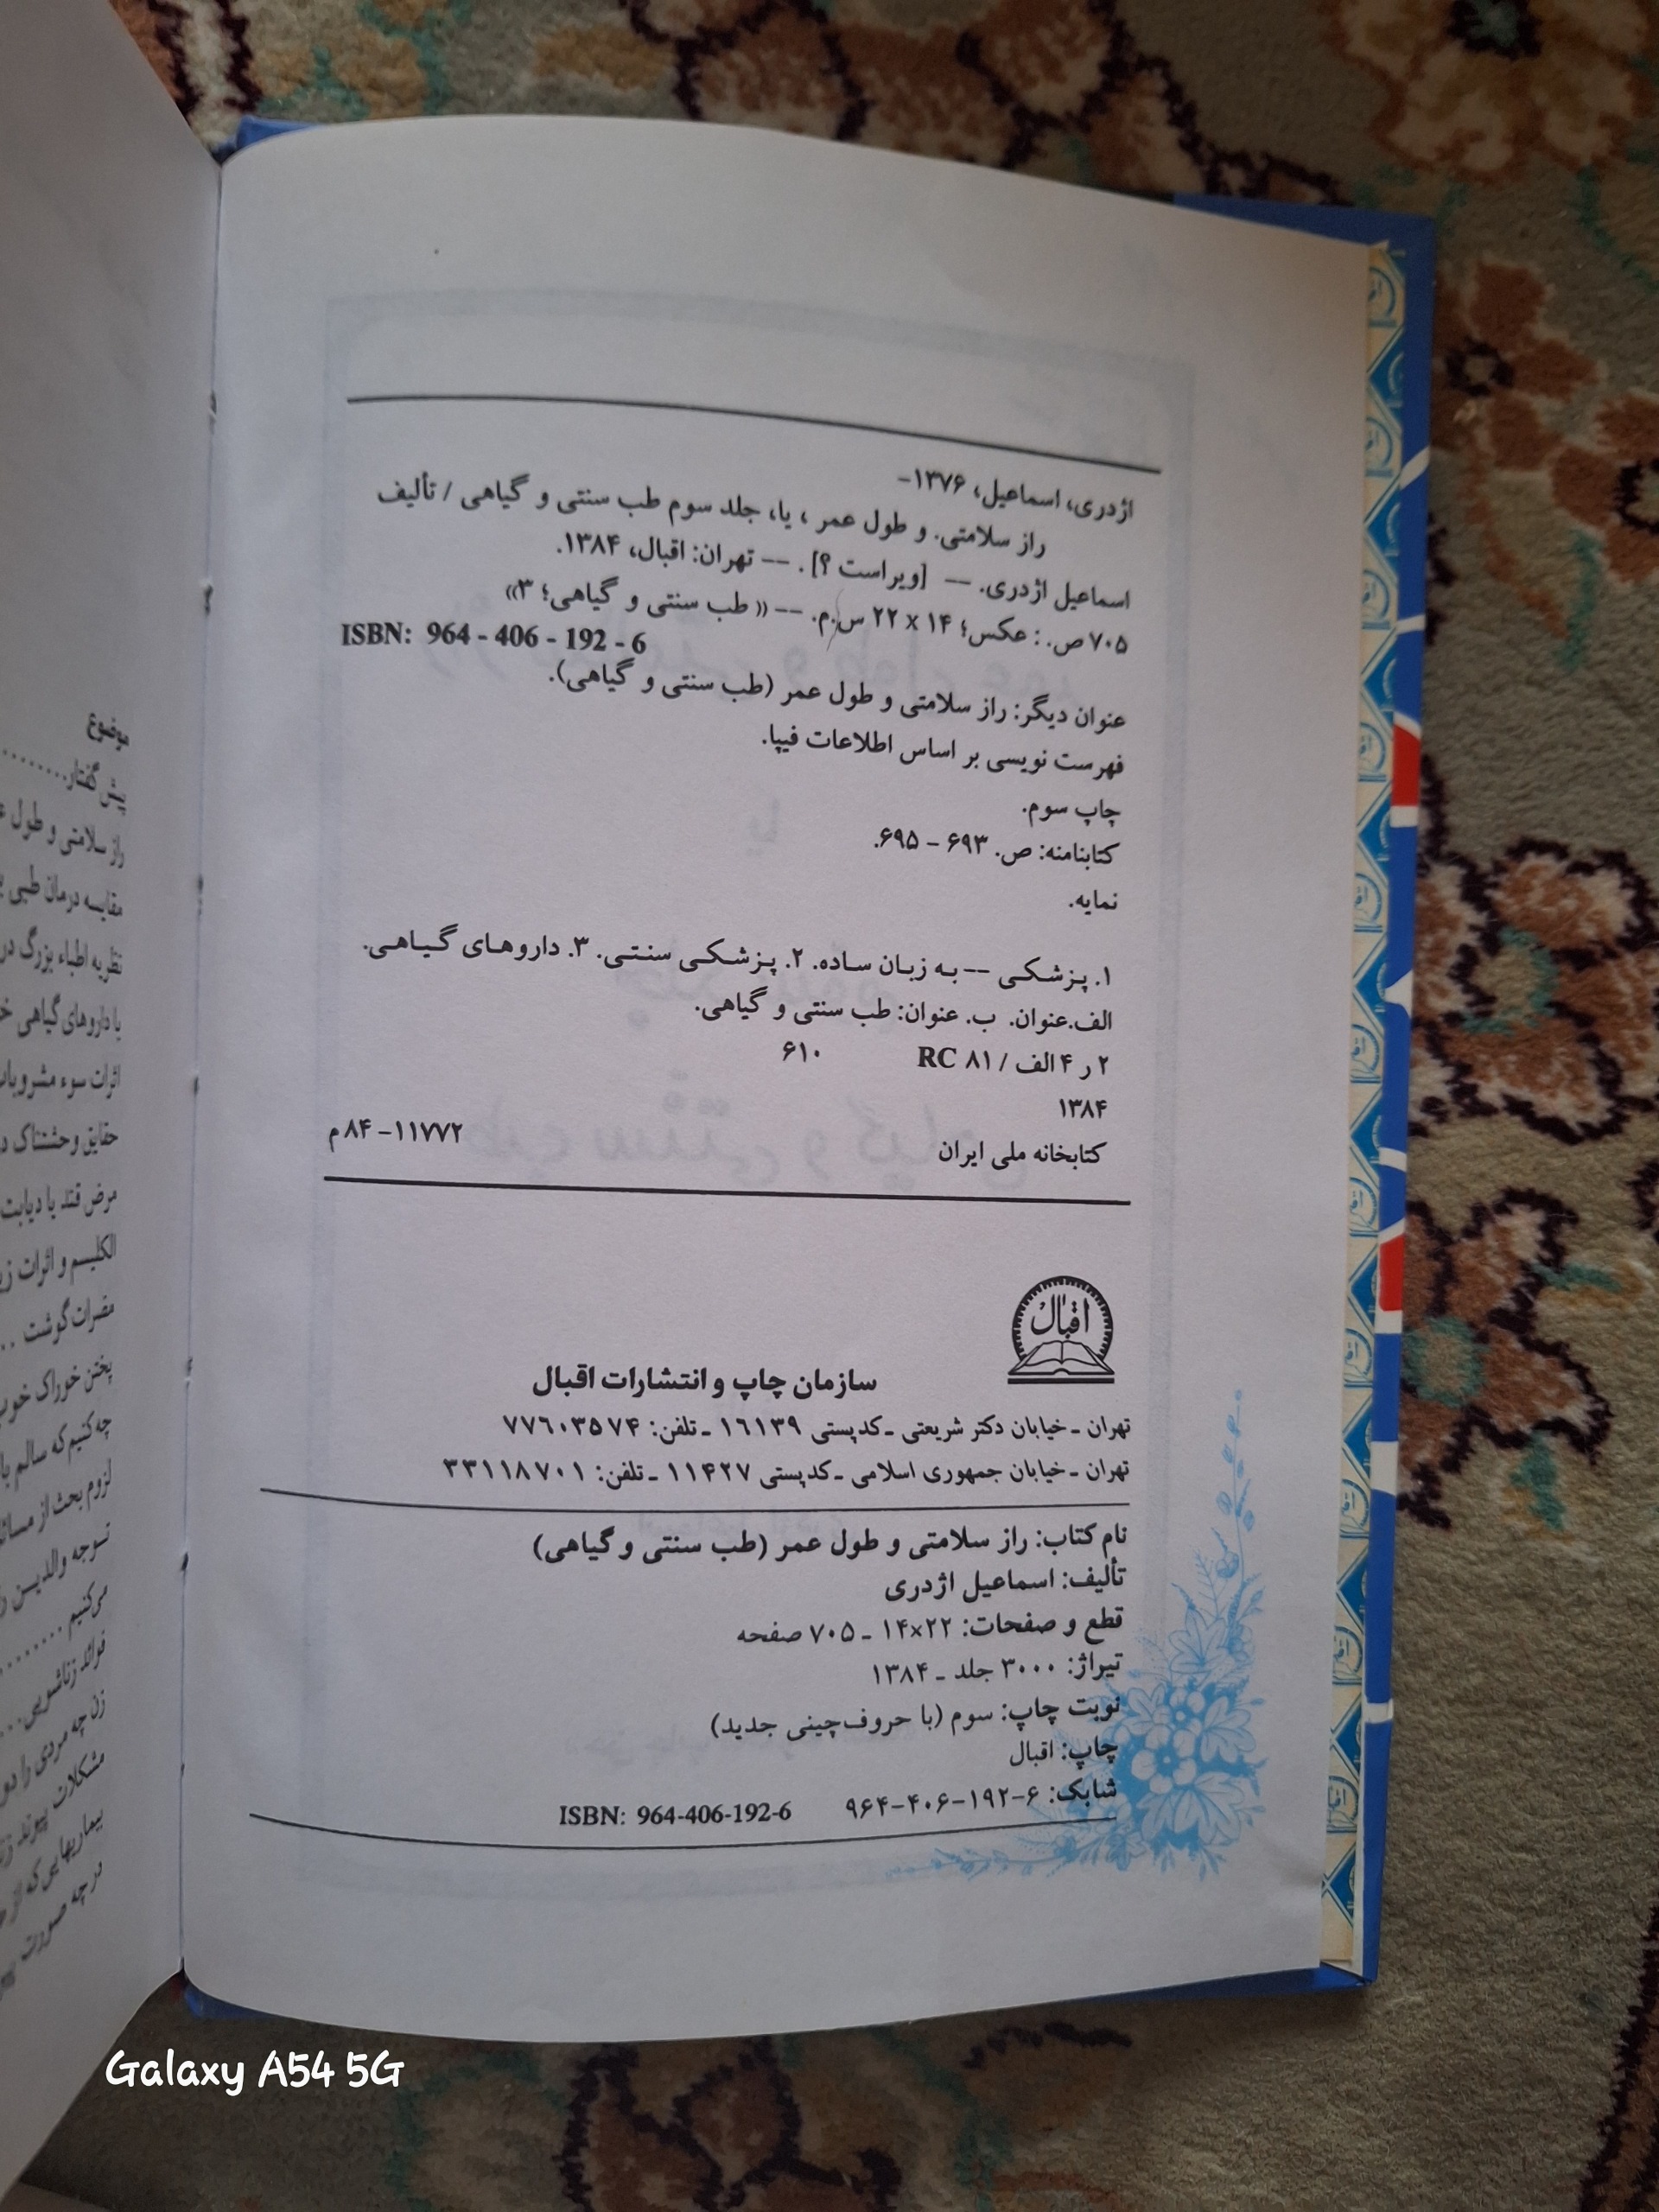 اژدری، اسماعیل، ۱۳۷۶-
راز سلامتی. و طول عمر ، یا، جلد سوم طب سنتی و گیاهی / تألیف
اسماعیل اژدری. -- [ویراست ؟]. -- تهران: اقبال، ۱۳۸۴.
۷۰۵ ص. : عکس؛ ۱۴ x ۲۲ س.م. -- « طب سنتی و گیاهی؛ ۳»
ISBN: 964 - 406 - 192 - 6
عنوان دیگر: راز سلامتی و طول عمر (طب سنتی و گیاهی).
فهرست نویسی بر اساس اطلاعات فیپا.
چاپ سوم.
کتابنامنه: ص. ۶۹۳ - ۶۹۵.
نمایه.
۱. پزشکی -- به زبان ساده. ۲. پزشکی سنتی. ۳. داروهای گیاهی.
الف.عنوان. ب. عنوان: طب سنتی و گیاهی.
۲ ر ۴ الف / ۸۱ RC ۶۱۰
۱۳۸۴
کتابخانه ملی ایران ۱۱۷۷۲-۸۴ م
اقبال
سازمان چاپ و انتشارات اقبال
تهران ـ خیابان دکتر شریعتی ـ کدپستی ۱۶۱۳۹ ـ تلفن: ۷۷۶۰۳۵۷۴
تهران ـ خیابان جمهوری اسلامی ـ کدپستی ۱۱۴۲۷ ـ تلفن: ۳۳۱۱۸۷۰۱
نام کتاب: راز سلامتی و طول عمر (طب سنتی و گیاهی)
تألیف: اسماعیل اژدری
قطع و صفحات: ۱۴×۲۲ ـ ۷۰۵ صفحه
تیراژ: ۳۰۰۰ جلد ـ ۱۳۸۴
نوبت چاپ: سوم (با حروف‌چینی جدید)
چاپ: اقبال
شابک: ۶-۱۹۲-۴۰۶-۹۶۴ ISBN: 964-406-192-6
موضوع
پیش گفتار........
راز سلامتی و طول
مقایسه درمان طبی
نظریه اطباء بزرگ در
با داروهای گیاهی
اثرات سوء مشروبات
حقایق وحشتناک
مرض قند یا دیابت
الکلیسم و اثرات
مضرات گوشت ..
پختن خوراک خوب
چه کنیم که سالم
لزوم بحث از مسائل
توجه والدین
می‌کنیم ........
فوائد زناشویی...
زن چه مردی را
مشکلات پیوند
بیماریهایی که از
در چه صورت
Galaxy A54 5G